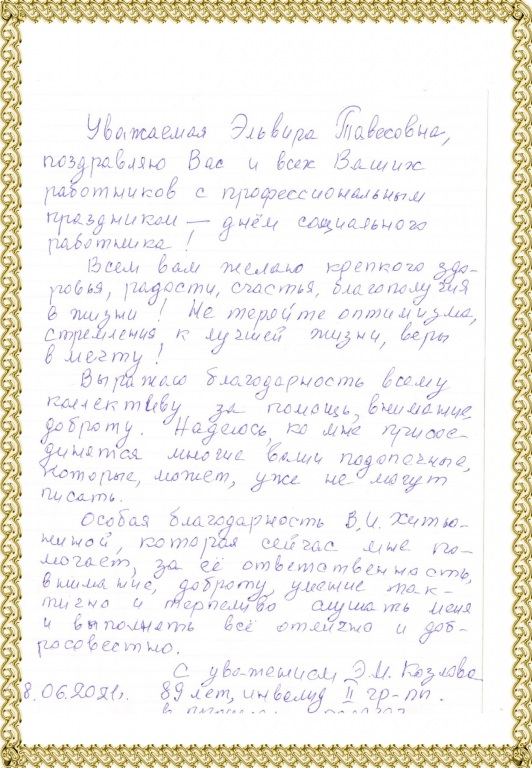 Уважаемая Эльвира Тавесовна,
поздравляю Вас и всех Ваших
работников с профессиональным
праздником — днём социального
работника!
Всем вам желаю крепкого здо-
ровья, радости, счастья, благополучия
в жизни! Не теряйте оптимизма,
стремления к лучшей жизни, веры
в мечту!
Выражаю благодарность всему
коллективу за помощь, внимание,
доброту. Надеюсь, ко мне присое-
динятся многие ваши подопечные,
которые, может, уже не могут
писать.
Особая благодарность В.И. Хитю-
ниной, которая сейчас мне по-
могает, за её ответственность,
внимание, доброту, умение так-
тично и терпеливо слушать меня
и выполнять всё отлично и доб-
росовестно.
С уважением Э.М. Козлова
8.06.2021г. 89 лет, инвалид II гр-пп.